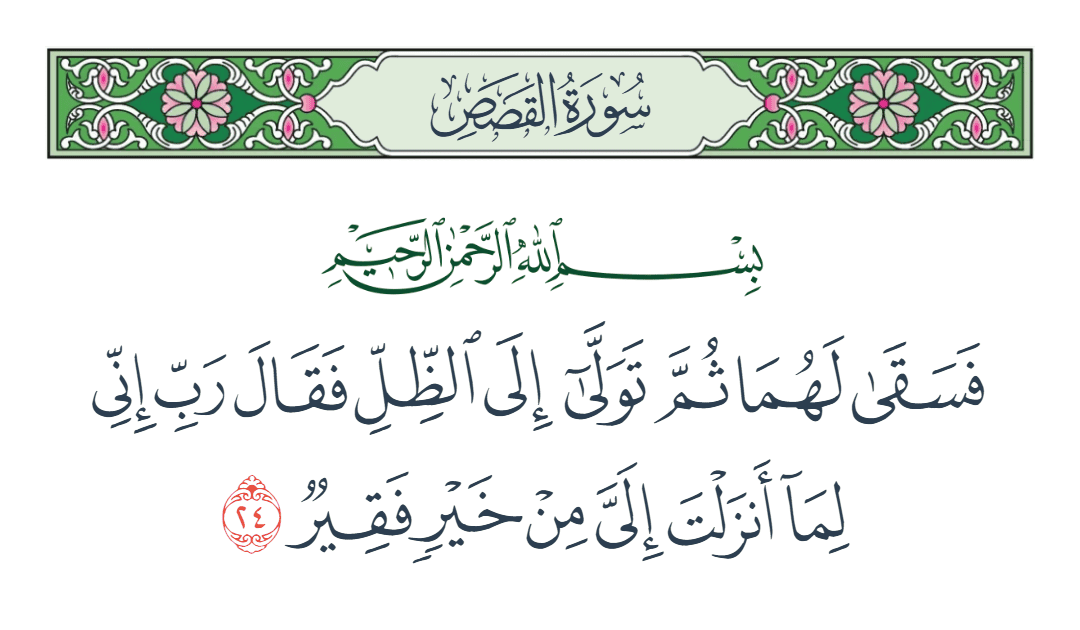 سُورَةُ القَصَصِ
بِسْمِ ٱللَّهِ ٱلرَّحْمَٰنِ ٱلرَّحِيمِ
فَسَقَىٰ لَهُمَا ثُمَّ تَوَلَّىٰٓ إِلَى ٱلظِّلِّ فَقَالَ رَبِّ إِنِّى
لِمَآ أَنزَلْتَ إِلَىَّ مِنْ خَيْرٍ فَقِيرٌ ٢٤